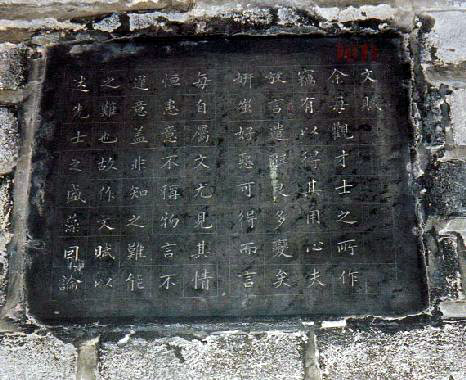 文賦
余每觀才士之所作
竊有以得其用心夫
放言遣辭良多變矣
妍蚩好惡可得而言
每自屬文尤見其情
恒患意不稱物言不
逮意蓋非知之難能
之難也故作文賦以
述先士之盛藻因論